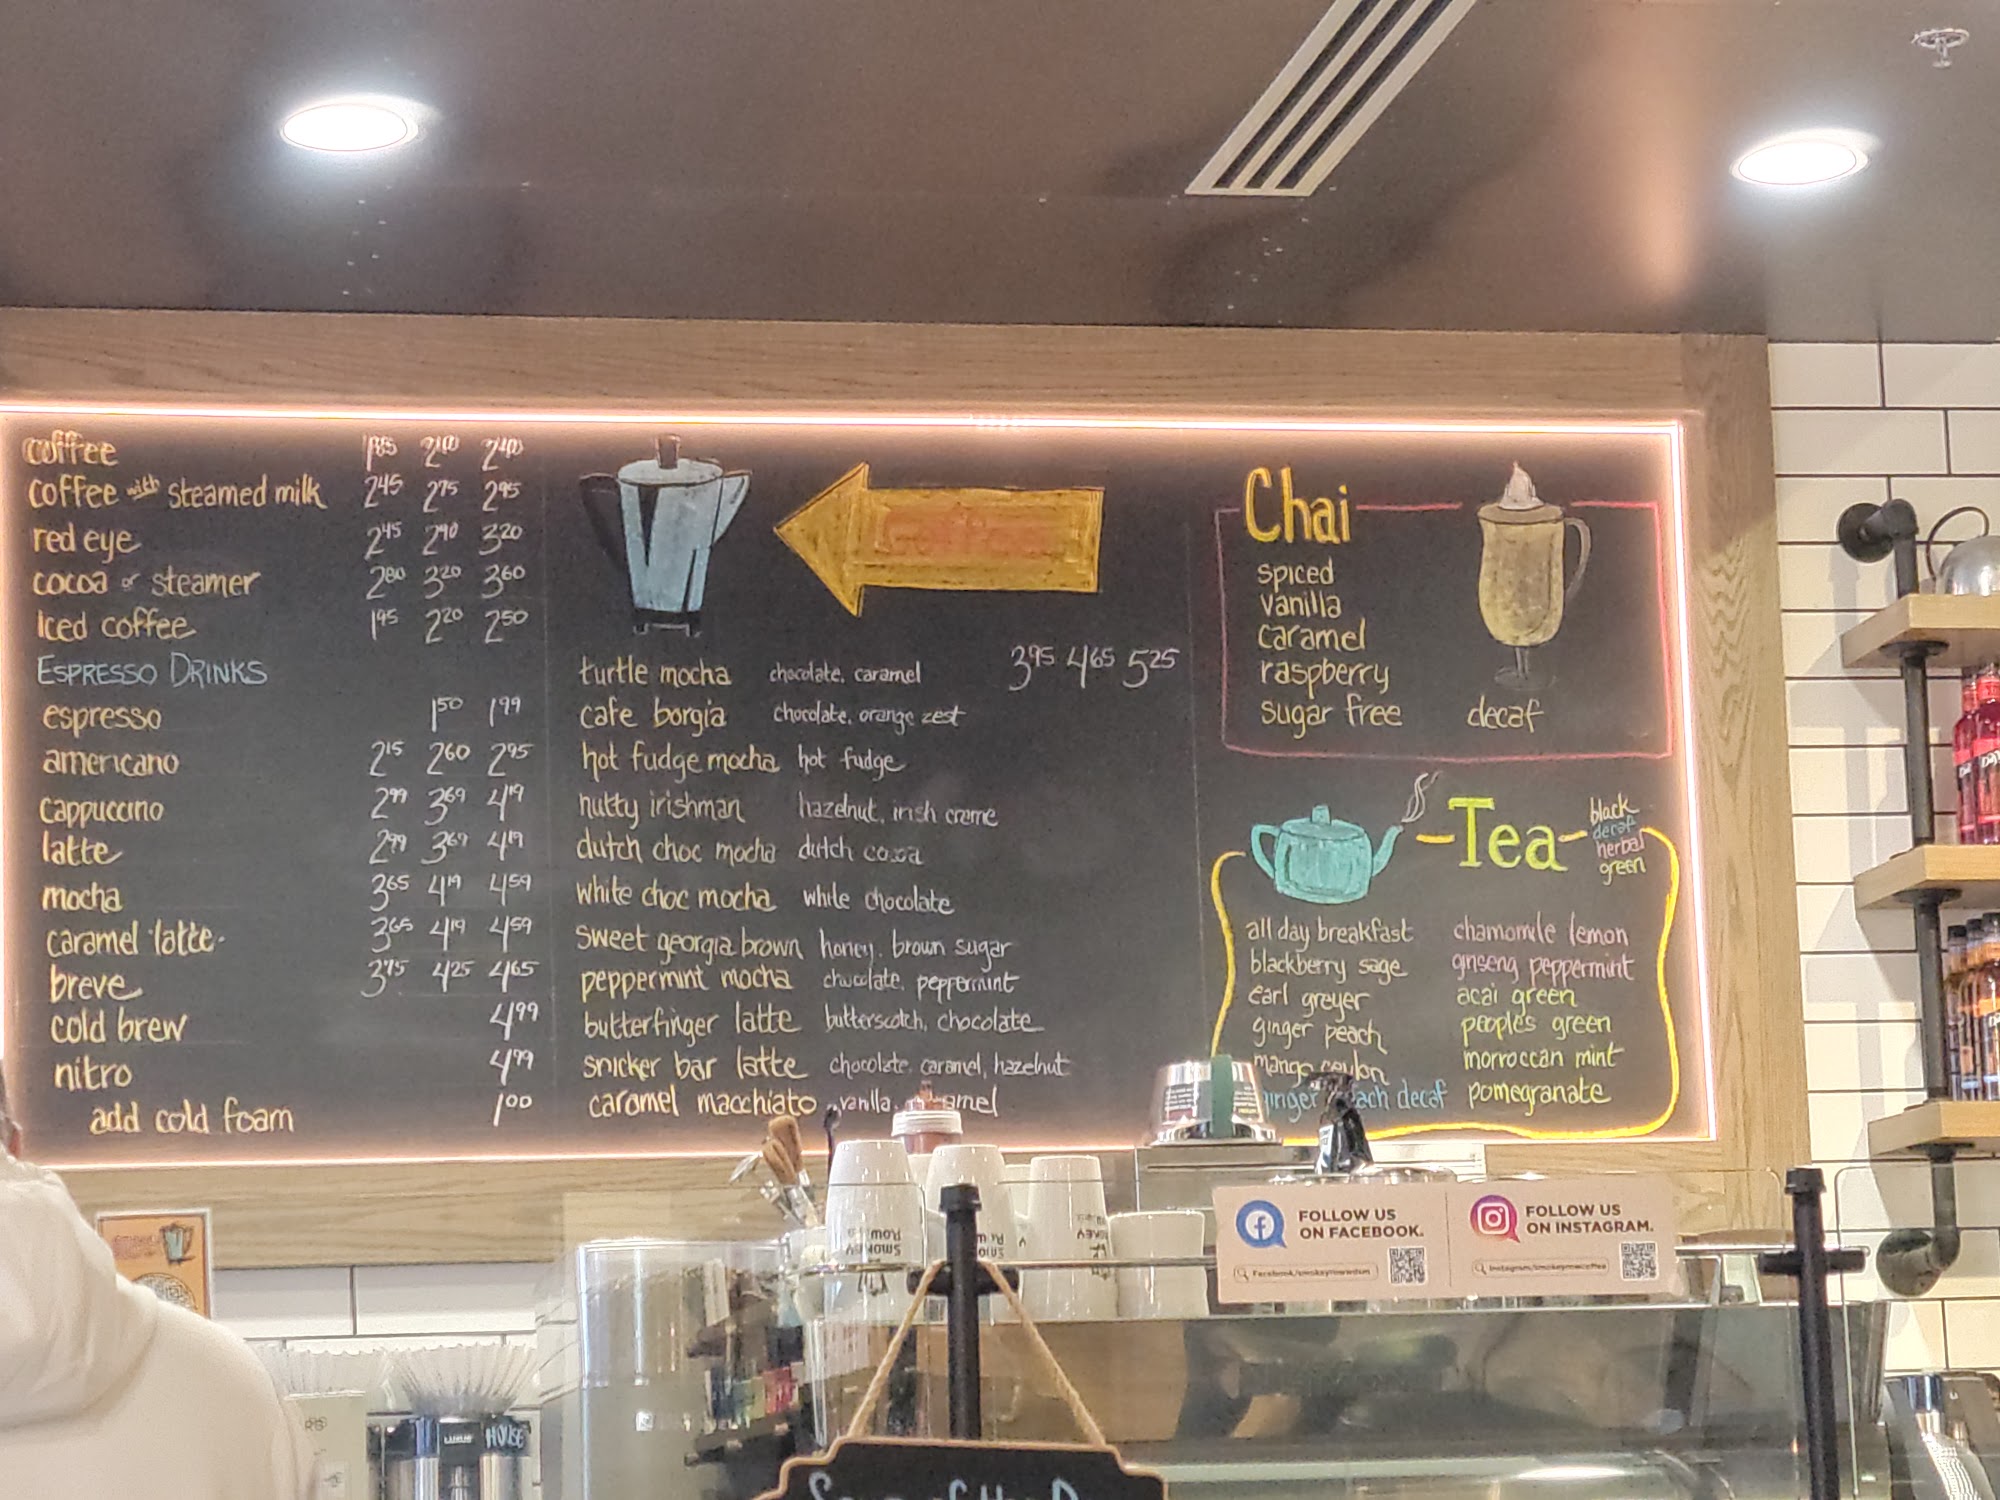 coffee 1.85 2.10 2.40
coffee with steamed milk 2.45 2.75 2.95
red eye 2.45 2.90 3.20
cocoa or steamer 2.80 3.20 3.60
Iced coffee 1.95 2.20 2.50
ESPRESSO DRINKS
espresso 1.50 1.99
americano 2.15 2.60 2.95
cappuccino 2.99 3.69 4.19
latte 2.99 3.69 4.19
mocha 3.65 4.19 4.59
caramel latte 3.65 4.19 4.59
breve 3.75 4.25 4.65
cold brew 4.99
nitro 4.99
add cold foam 1.00
coffee
3.95 4.65 5.25
turtle mocha chocolate, caramel
cafe borgia chocolate, orange zest
hot fudge mocha hot fudge
nutty irishman hazelnut, irish creme
dutch choc mocha dutch cocoa
white choc mocha white chocolate
sweet georgia brown honey, brown sugar
peppermint mocha chocolate, peppermint
butterfinger latte butterscotch, chocolate
snicker bar latte chocolate, caramel, hazelnut
caramel macchiato vanilla,
Chai
spiced
vanilla
caramel
raspberry
sugar free decaf
Tea
black
decaf
herbal
green
all day breakfast
blackberry sage
earl greyer
ginger peach
mango ceylon
decaf
chamomile lemon
ginseng peppermint
acai green
people's green
morroccan mint
pomegranate
SMOKEY
ROW
FOLLOW US
ON FACEBOOK.
Facebook/smokeyrowdsm
FOLLOW US
ON INSTAGRAM.
Instagram/smokeyrowcoffee
HOUSE